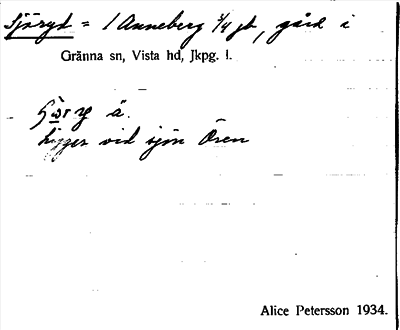 Sjöryd = 1 Anneberg 3/4 jb, gård i
Gränna sn, Vista hd, Jkpg. l.
ä.
Ligger vid sjön Ören
Alice Petersson 1934.